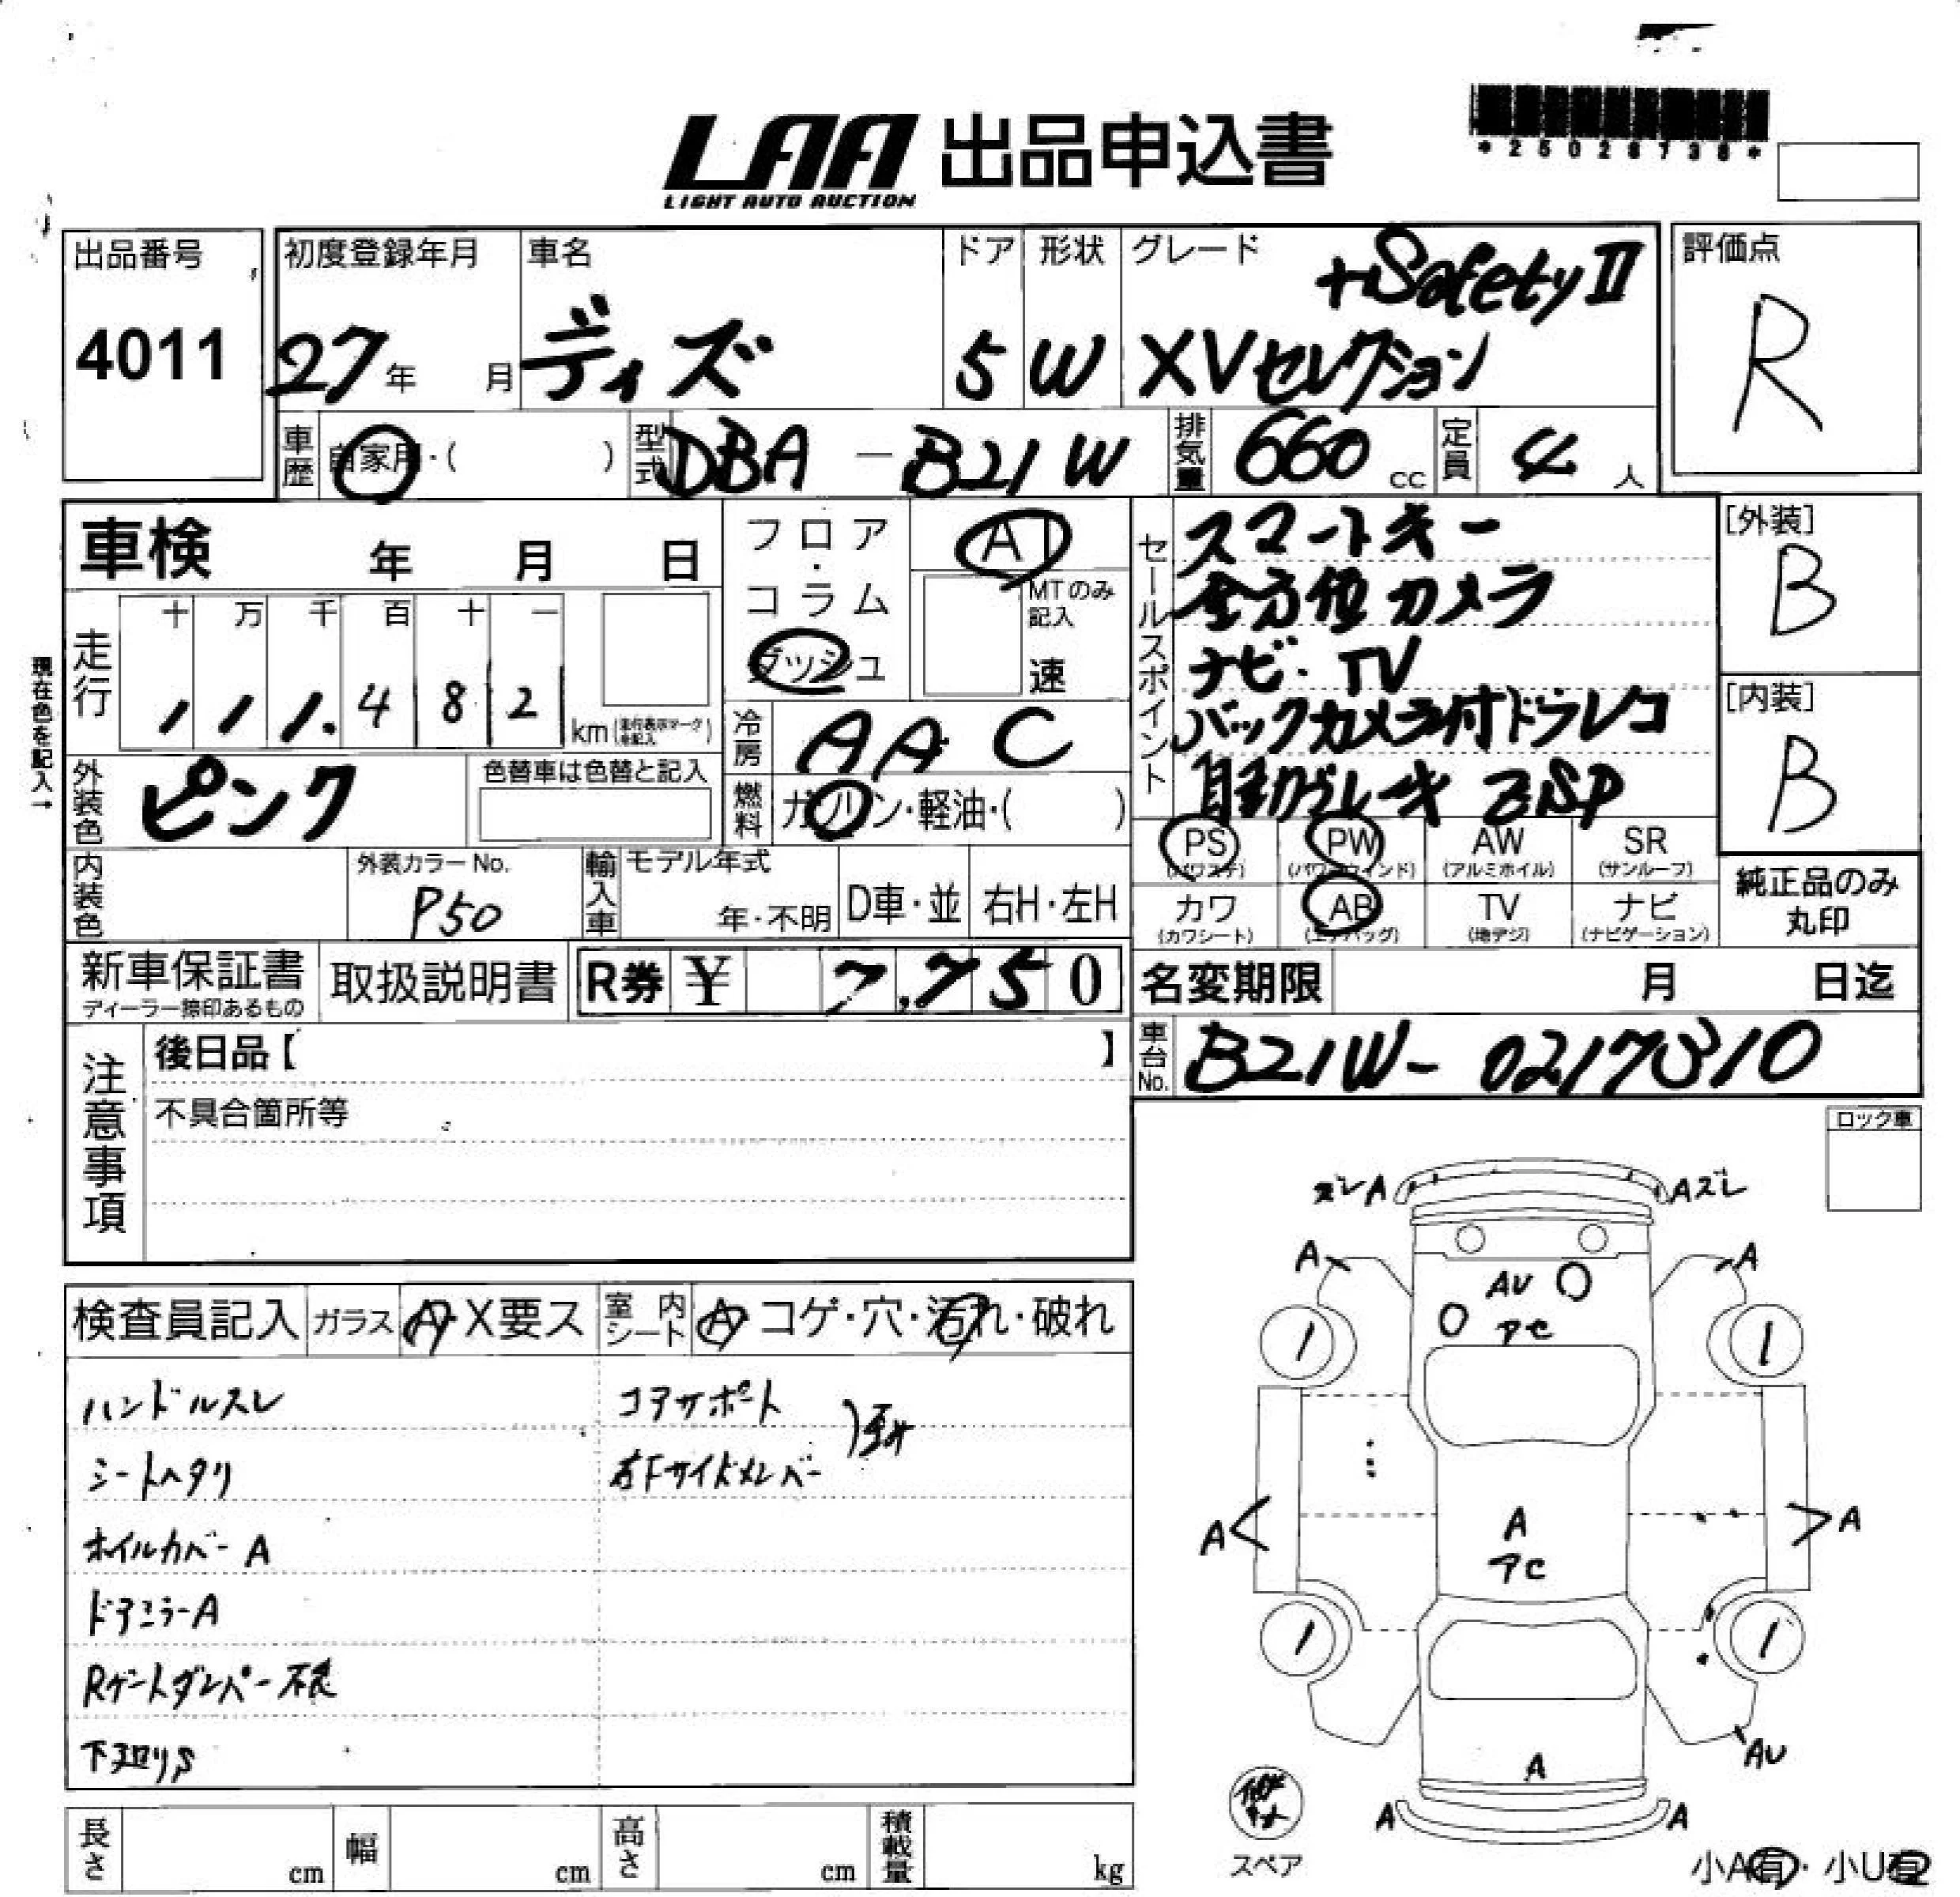 LAA 出品申込書
LIGHT AUTO AUCTION
*25028736*
出品番号
4011
初度登録年月
27年 月
車名
ディズ
ドア
5
形状
W
グレード
+Safety II
XVセレクション
評価点
R
車歴
自家用・( )
型式
DBA - B21W
排気量
660 cc
定員
4 人
車検 年 月 日
フロア・コラム
ダッシュ
AT
MTのみ記入
速
セールスポイント
スマートキー
全方位カメラ
ナビ・TV
バックカメラ付ドラレコ
自動ブレーキ ESP
[外装]
B
[内装]
B
現在色を記入→
走行
十 万 千 百 十 一
1 1 1. 4 8 2
km (走行表示マークを記入)
冷房
AAC
外装色
ピンク
色替車は色替と記入
燃料
ガソリン・軽油・( )
PS
(パワステ)
PW
(パワーウインド)
AW
(アルミホイル)
SR
(サンルーフ)
カワ
(カワシート)
AB
(エアバッグ)
TV
(地デジ)
ナビ
(ナビゲーション)
純正品のみ
丸印
内装色
外装カラーNo.
P50
輸入車
モデル年式
年・不明
D車・並
右H・左H
新車保証書
ディーラー捺印あるもの
取扱説明書
R券 ¥ 7,750
名変期限 月 日迄
車台No.
B21W-0217310
注意事項
後日品【 】
不具合箇所等
ロック車
検査員記入
ガラス
A・X要ス
室内シート
A・コゲ・穴・汚れ・破れ
ハンドルスレ
シートヘタリ
ホイルカバーA
ドアミラーA
Rゲートダンパー不良
下廻りS
コアサポート
右Fサイドメンバー
ズレA
Aズレ
A
A
AU
アC
1
1
A
A
A
アC
1
1
AU
A
A
A
スペア
小A有・小U有
長さ cm
幅 cm
高さ cm
積載量 kg